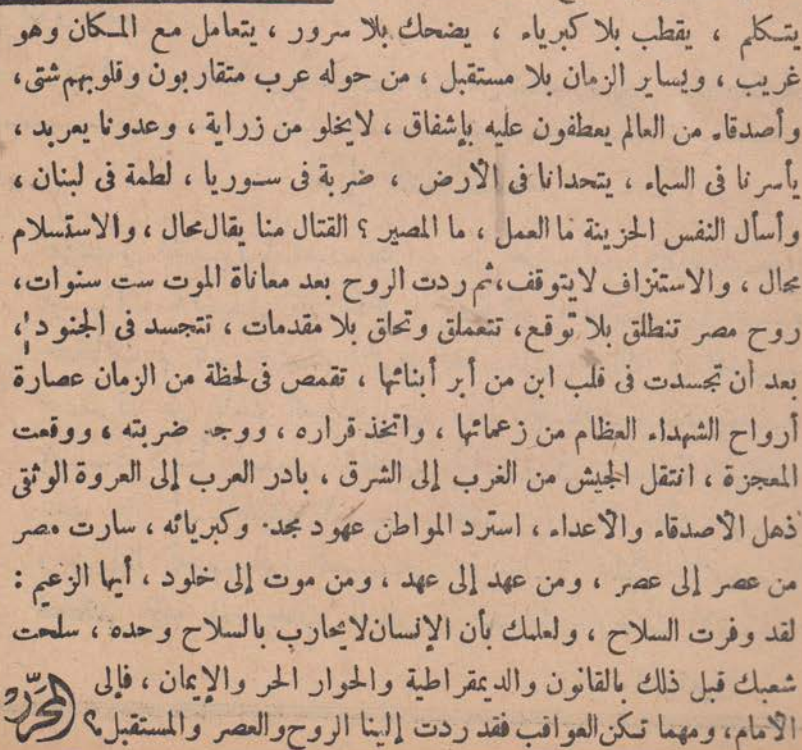 يتكلم ، يقطب بلا كبرياء ، يضحك بلا سرور ، يتعامل مع المكان وهو
غريب ، ويساير الزمان بلا مستقبل ، من حوله عرب متقاربون وقلوبهم شتى ،
وأصدقاء من العالم يعطفون عليه بإشفاق ، لايخلو من زراية ، وعدونا يعربد ،
يأسرنا فى السماء ، يتحدانا فى الأرض ، ضربة فى سوريا ، لطمة فى لبنان ،
وأسأل النفس الحزينة ما العمل ، ما المصير ؟ القتال منا يقال محال ، والاستسلام
محال ، والاستنزاف لايتوقف ، ثم ردت الروح بعد معاناة الموت ست سنوات ،
روح مصر تنطلق بلا توقع ، تتعملق وتحلق بلا مقدمات ، تتجسد فى الجنود ،
بعد أن تجسدت فى قلب ابن من أبر أبنائها ، تقمص فى لحظة من الزمان عصارة
أرواح الشهداء العظام من زعمائها ، واتخذ قراره ، ووجه ضربته ، ووقعت
المعجزة ، انتقل الجيش من الغرب إلى الشرق ، بادر العرب إلى العروة الوثقى
ذهل الأصدقاء والأعداء ، استرد المواطن عهود مجده وكبريائه ، سارت مصر
من عصر إلى عصر ، ومن عهد إلى عهد ، ومن موت إلى خلود ، أيها الزعيم :
لقد وفرت السلاح ، ولعلمك بأن الإنسان لايحارب بالسلاح وحده ، سلحت
شعبك قبل ذلك بالقانون والديمقراطية والحوار الحر والإيمان ، فإلى
الأمام ، ومهما تكن العواقب فقد ردت إلينا الروح والعصر والمستقبل ؟ المحرر